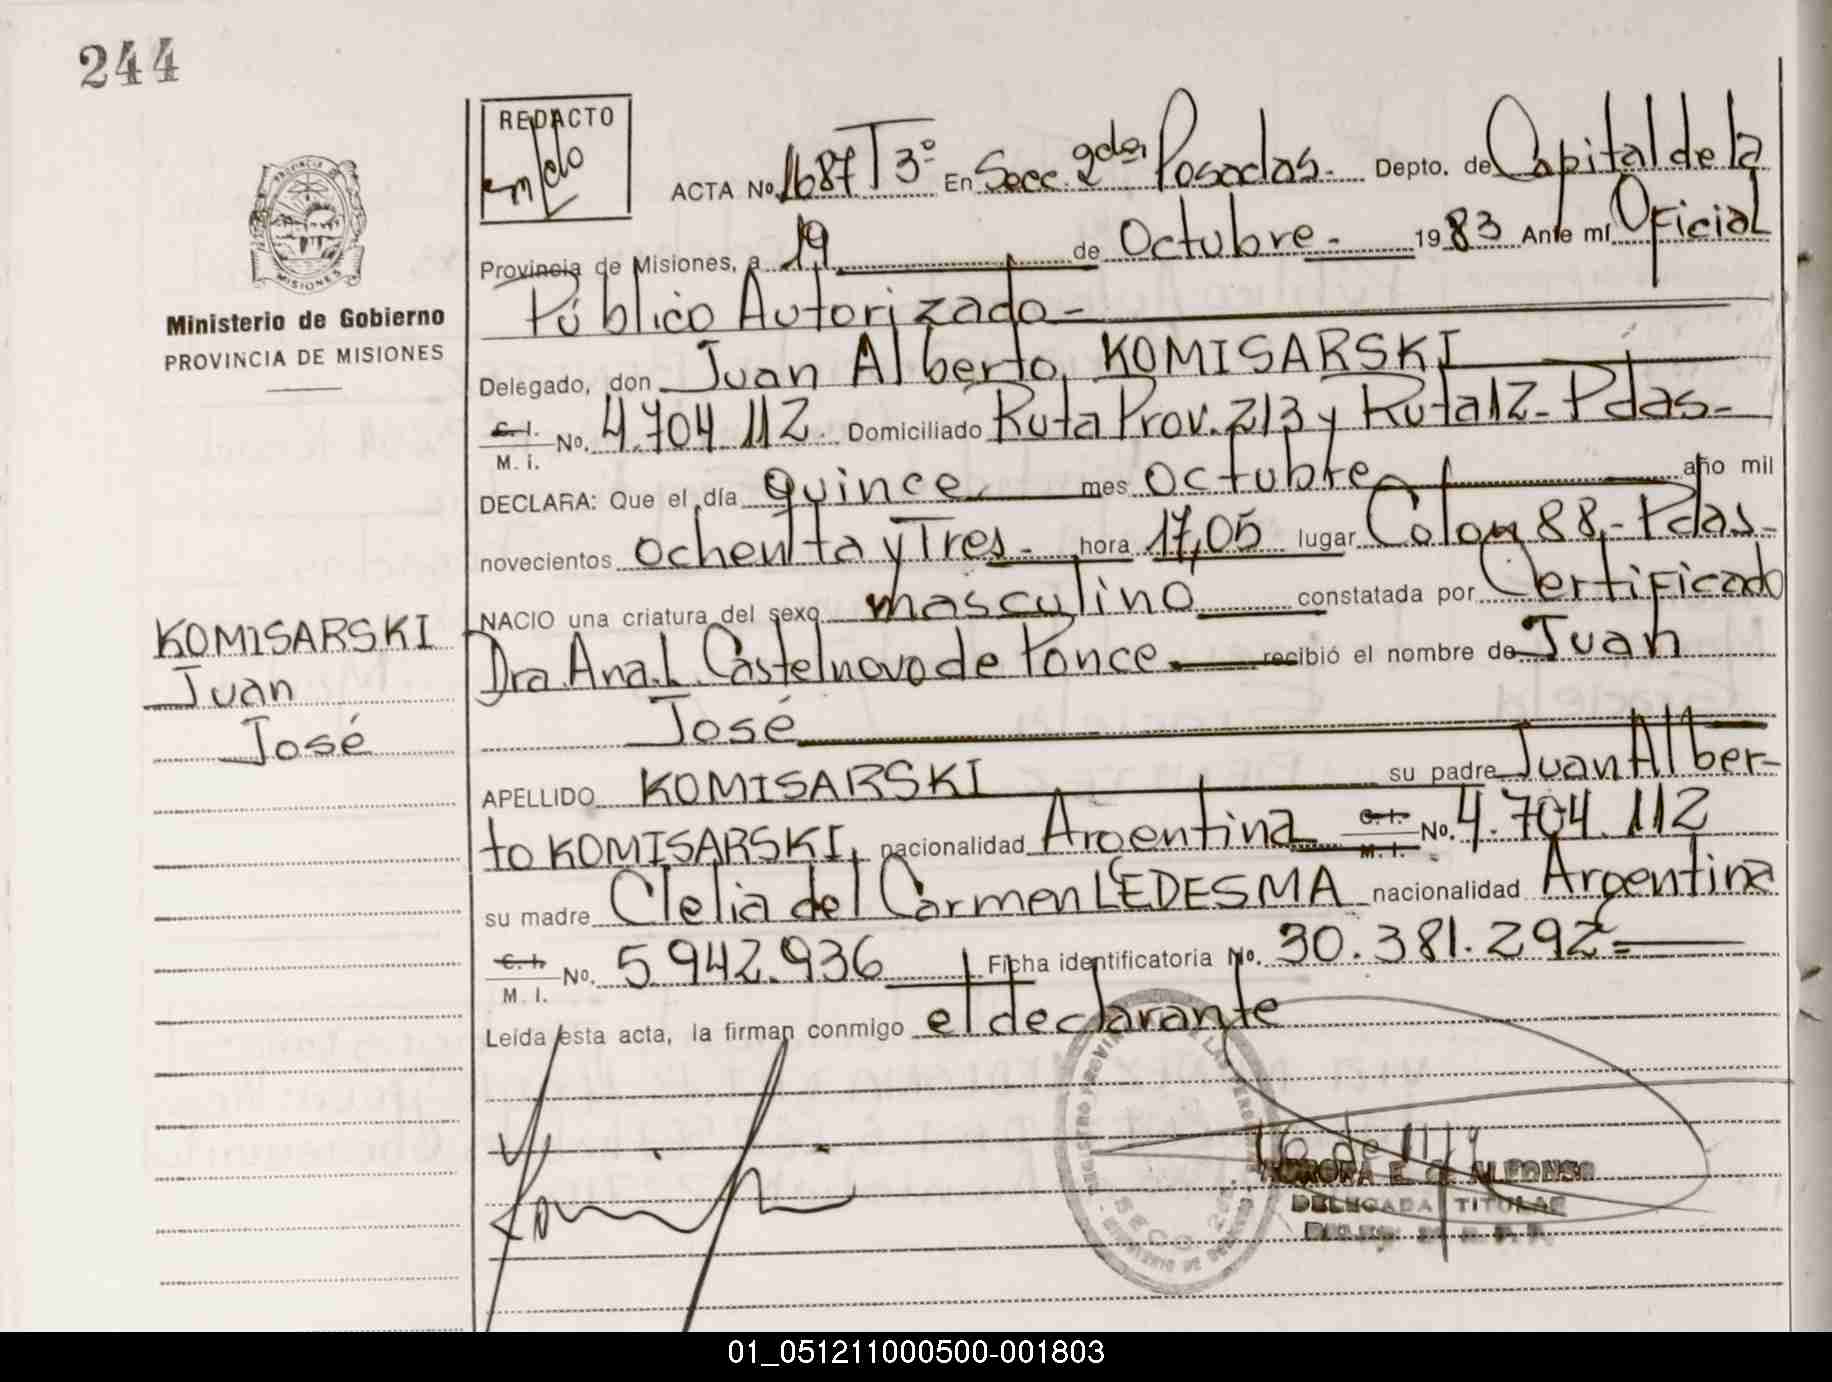 244
REDACTO
ACTA No. 1687 T 3º En Secc. 2da Posadas. Depto. de Capital de la
Provincia de Misiones, a 19 de Octubre - 1983 Ante mí Oficial
Público Autorizado -
Delegado, don Juan Alberto, KOMISARSKI
C. I.
M. i.
No. 4.704.112. Domiciliado Ruta Prov. 213 y Ruta 12 - Pdas -
DECLARA: Que el día quince mes octubre año mil
novecientos ochenta y Tres - hora 17,05 lugar Colon 88,- Pdas -
NACIO una criatura del sexo masculino constatada por Certificado
Dra. Ana. L. Castelnovo de Ponce recibió el nombre de Juan
José
APELLIDO KOMISARSKI su padre Juan Alber-
to KOMISARSKI, nacionalidad Argentina C. I. M. I. No. 4.704.112
su madre Clelia del Carmen LEDESMA nacionalidad Argentina
C. I.
M. I.
No. 5.942.936 Ficha identificatoria No. 30.381.292=
Leída esta acta, la firman conmigo el declarante
PROVINCIA
MISIONES
Ministerio de Gobierno
PROVINCIA DE MISIONES
KOMISARSKI
Juan
José
E. DE ALFONSO
DELEGADA TITULAR
01_051211000500-001803